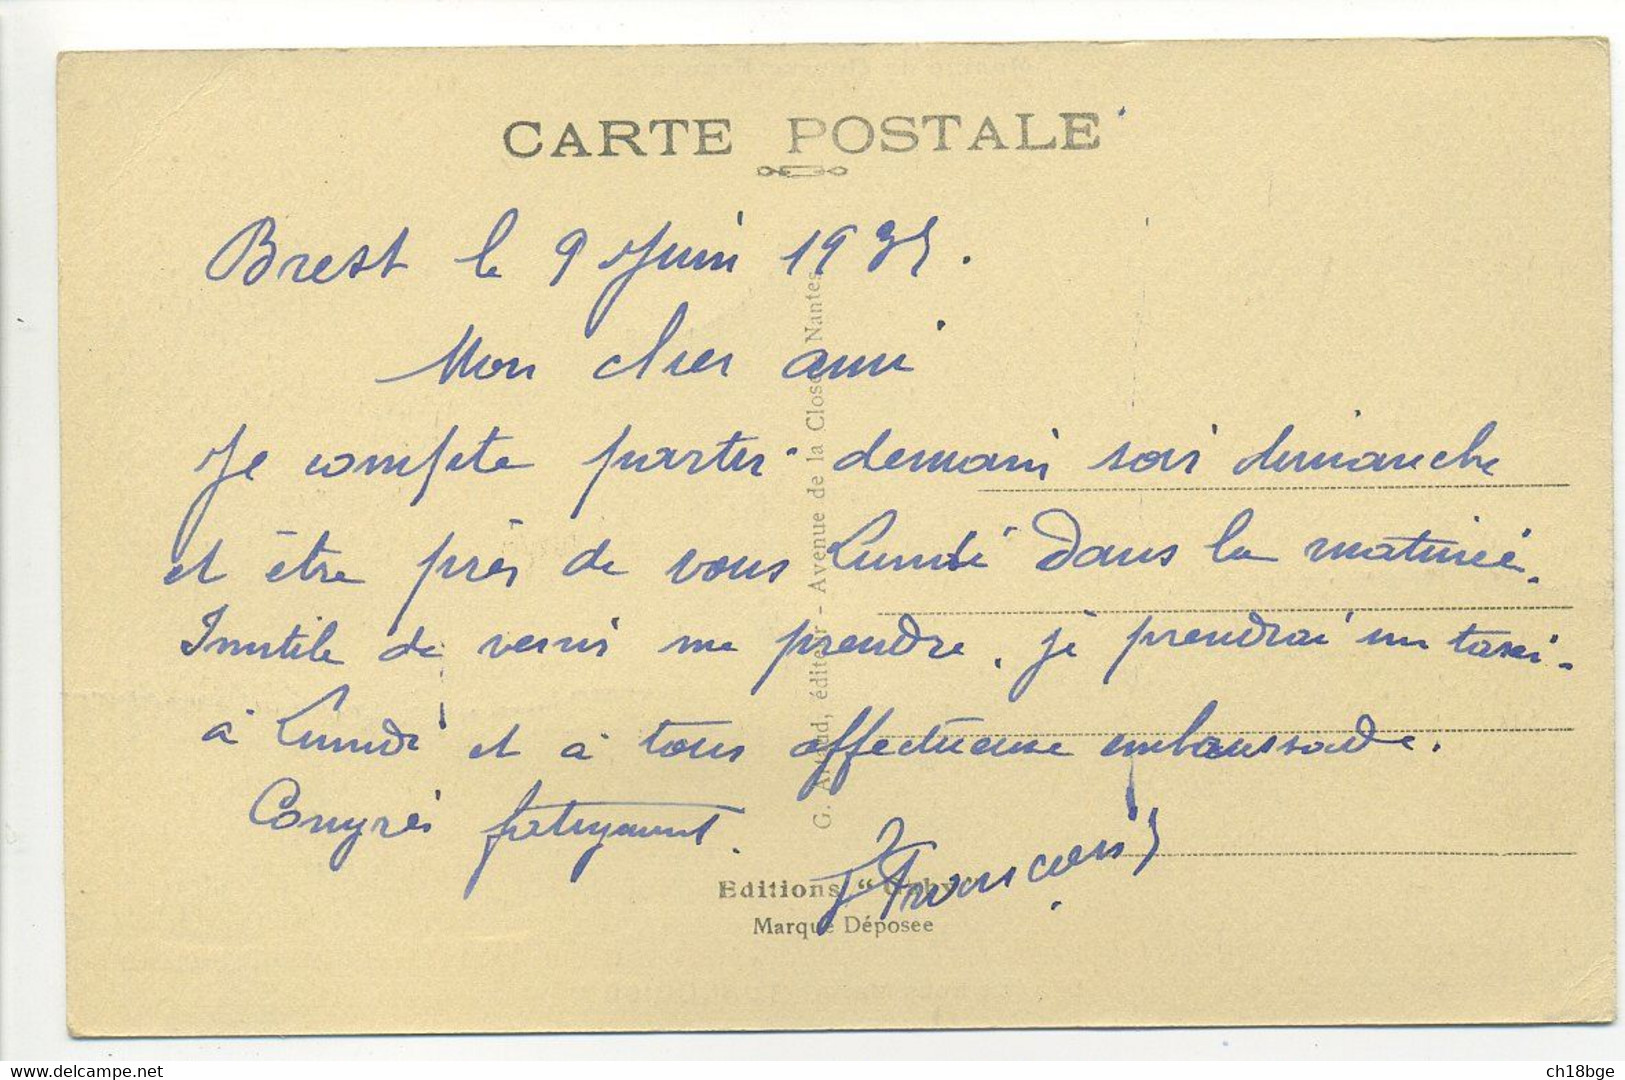 CARTE POSTALE
Brest le 9 Juin 1935.
Mon cher ami
Je compte partir demain soir dimanche
et être près de vous Lundi dans la matinée.
Inutile de venir me prendre, je prendrai un taxi.
à Lundi et à tous affectueuse embrassade.
Congrès fatiguant.
François
G. Artaud, éditeur - Avenue de la Close, Nantes
Editions "Gaby"
Marque Déposée
delcampe.net
ch18bge